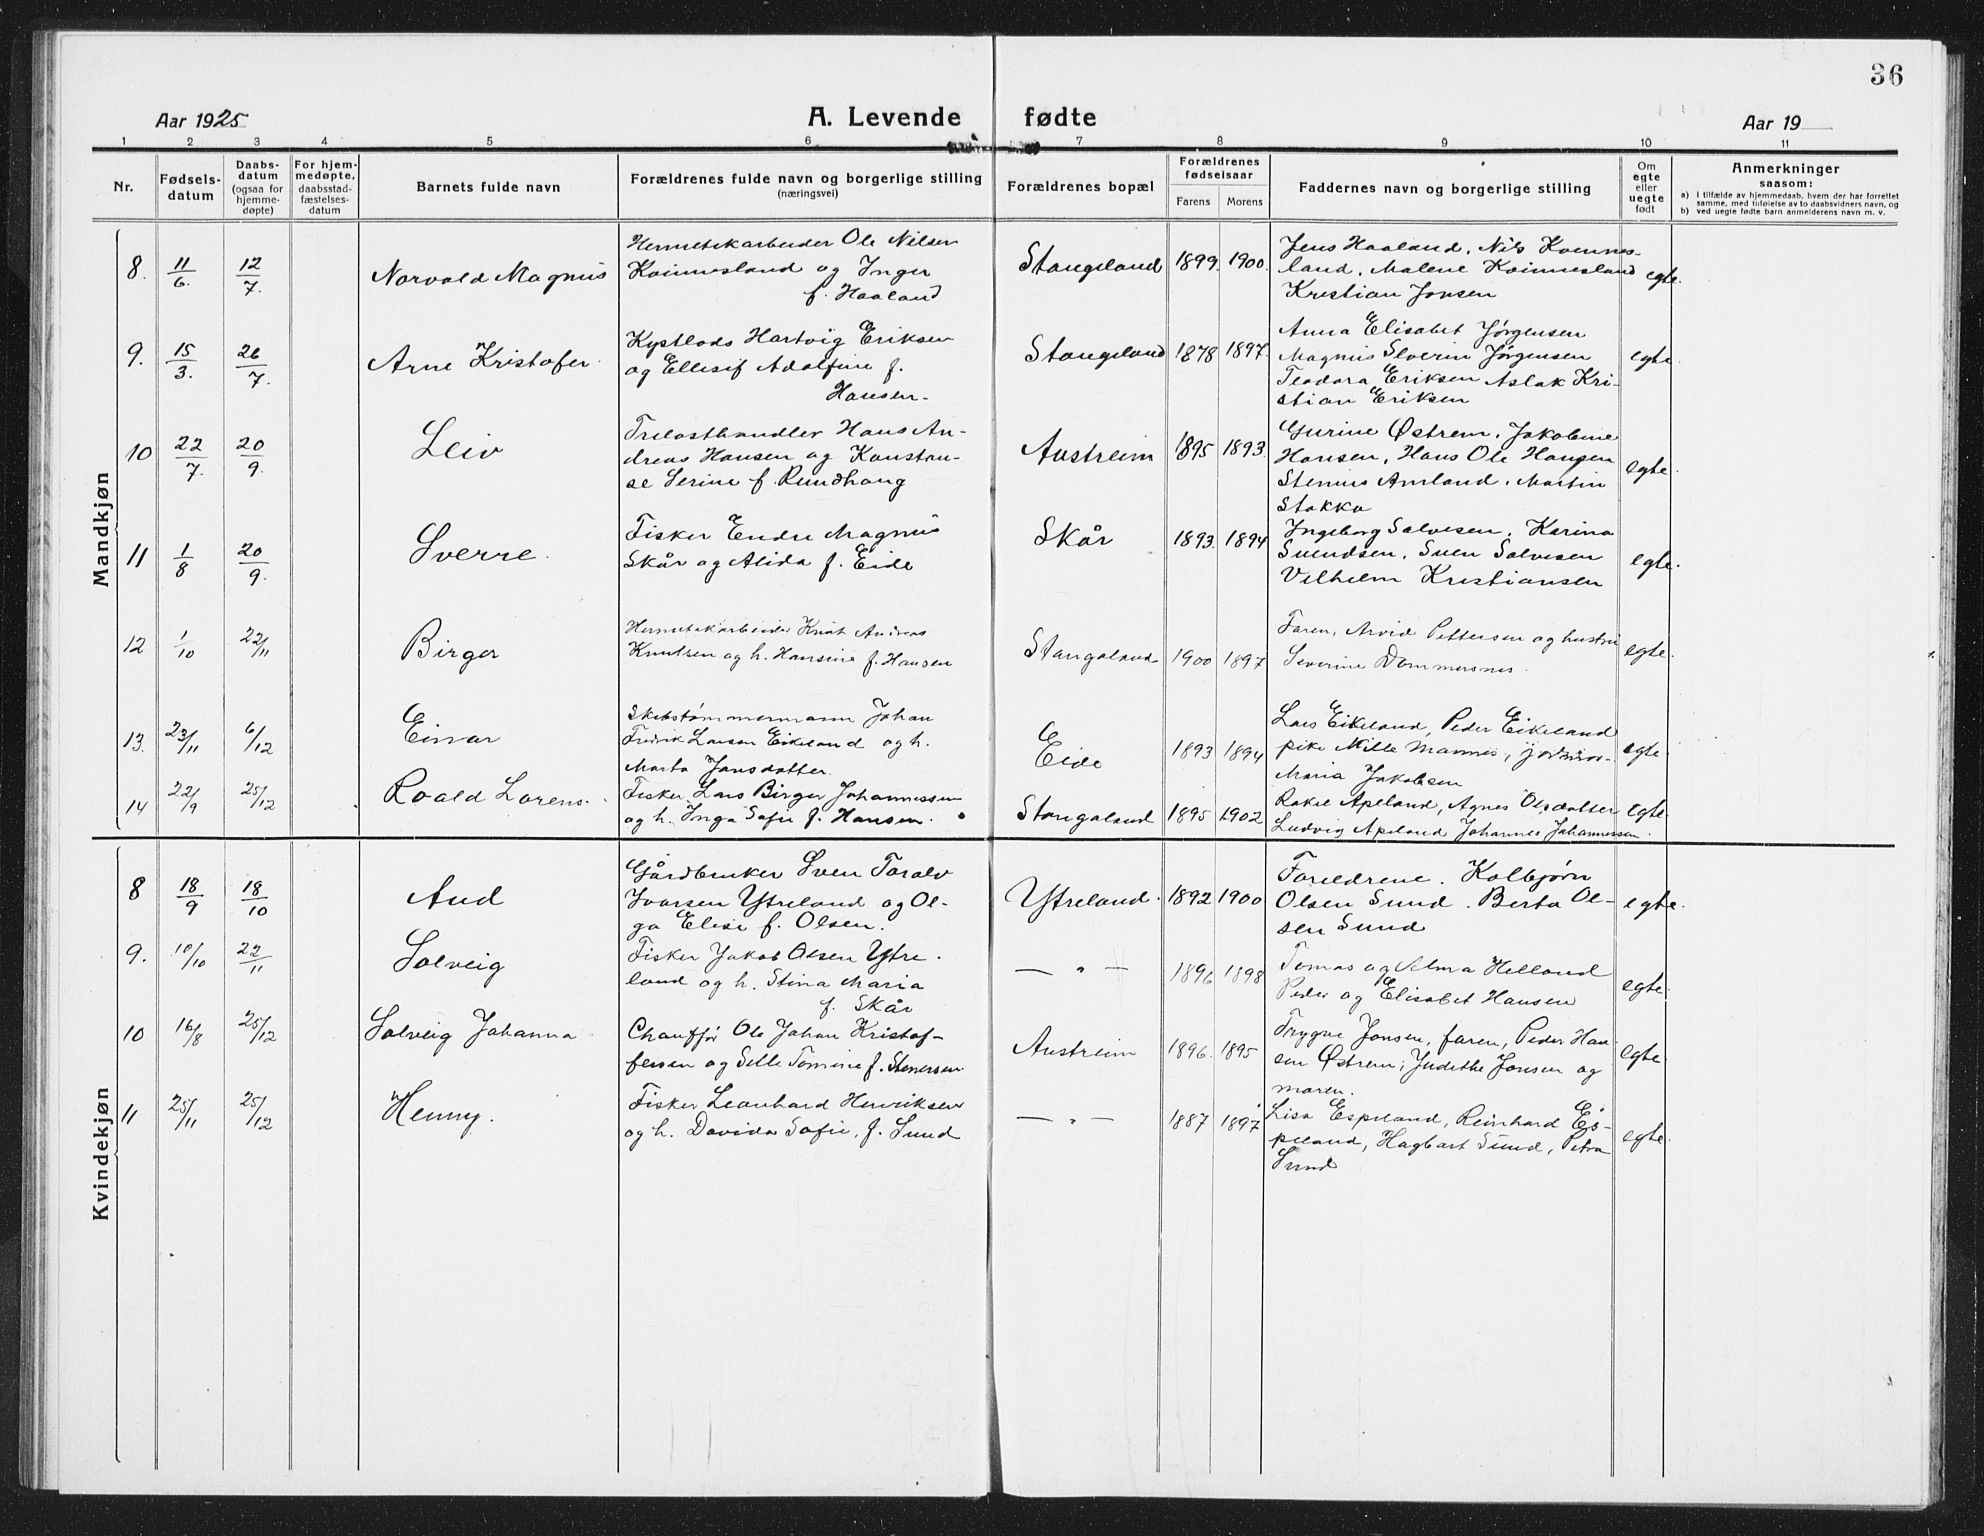 36
Aar 1925
A. Levende
fødte
Aar 19
1 2 3 4 5 6 7 8 9 10 11
Nr.
Fødsels-
datum
Daabs-
datum
(ogsaa for
hjemme-
døpte)
For hjem-
medøpte,
daabsstad-
fæstelses-
datum
Barnets fulde navn
Forældrenes fulde navn og borgerlige stilling
(næringsvei)
Forældrenes bopæl
Forældrenes
fødselsaar
Farens Morens
Faddernes navn og borgerlige stilling
Om
egte
eller
uegte
født
Anmerkninger
saasom:
a) I tilfælde av hjemmedaab, hvem der har forrettet
samme, med tilføielse av to daabsvidners navn, og
b) ved uegte fødte barn anmelderens navn m. v.
Mandkjøn
8. 11/6. 12/7. Norvald Magnus
Hermetikarbeider Ole Nilsen
Kvinnesland og Inger
f. Haaland
Stangeland 1899. 1900.
Jens Haaland, Nils Kvinnes-
land, Malene Kvinnesland
Kristian Jonsen
egte.
9. 15/3. 26/7. Arne Kristofer.
Kystlods Hartvig Eriksen
og Ellesif Adolfine f.
Hansen.
Stangeland 1878 1897.
Anna Elisabet Jørgensen
Magnus Severin Jørgensen
Teodora Eriksen Aslak Kri-
stian Eriksen
egte.
10 22/7. 20/9. Leiv
Trelasthandler Hans An-
dreas Hansen og Konstan-
se Serine f. Rundhaug
Austreim 1895 1893.
Gurine Østrem, Jakobine
Hansen, Hans Ole Hansen
Stenius Amland, Martin
Stokka
egte.
11 1/8 20/9. Sverre.
Fisker Endre Magnus
Skår og Alida f. Eide
Skår 1893. 1894
Ingeborg Salvesen, Karina
Svendsen, Sven Salvesen
Vilhelm Kristiansen
egte.
12 1/10 22/11 Birger
Hermetikarbeider Knut Andreas
Knutsen og h. Hansine f. Hansen
Stangaland 1900 1897
Faren, Arvid Pettersen og hustru
Severine Dommersnes.
egte.
13. 23/11 6/12 Einar
Skibstømmermann Johan
Fredrik Larsen Eikeland og h.
Marta Jansdatter.
Eide 1893 1894
Lars Eikeland, Peder Eikeland
pike Mille Mannes, jordmor
Maria Jakobsen
egte.
14 22/9 25/12 Roald Lorens.
Fisker Lars Birger Johannessen
og h. Inga Sofie f. Hansen.
Stangaland 1895 1902
Rakel Apeland, Agnes Olsdatter
Ludvig Apeland Johannes Johannessen.
egte.
Kvindekjøn
8 18/9 18/10 Aud
Gårdbruker Sven Toralv
Ivarsen Ytreland og Ol-
ga Elise f. Olsen.
Ytreland. 1892 1900
Foreldrene. Kolbjørn
Olsen Sund. Berta Ol-
sen Sund
egte.
9. 10/10 22/11 Solveig
Fisker Jakob Olsen Ytre.
land og h. Stina Maria
f. Skår
— " — 1896 1898
Tomas og Alma Helland
Peder og Elisabet Hansen
egte.
10 16/8 25/12 Solveig Johanna
Chauffør Ole Johan Kristof-
fersen og Selle Tomine f. Stenersen
Austreim 1896. 1895
Trygve Jonsen, faren, Peder Han-
sen Østrem, Judithe Jonsen og
moren.
egte.
11 25/11 25/12 Henny.
Fisker Leonhard Henriksen
og h. Davida Sofie, f. Sund
— " — 1887 1897
Lisa Espeland, Reinhard Es-
peland, Hagbart Sund, Petra
Sund
egte.